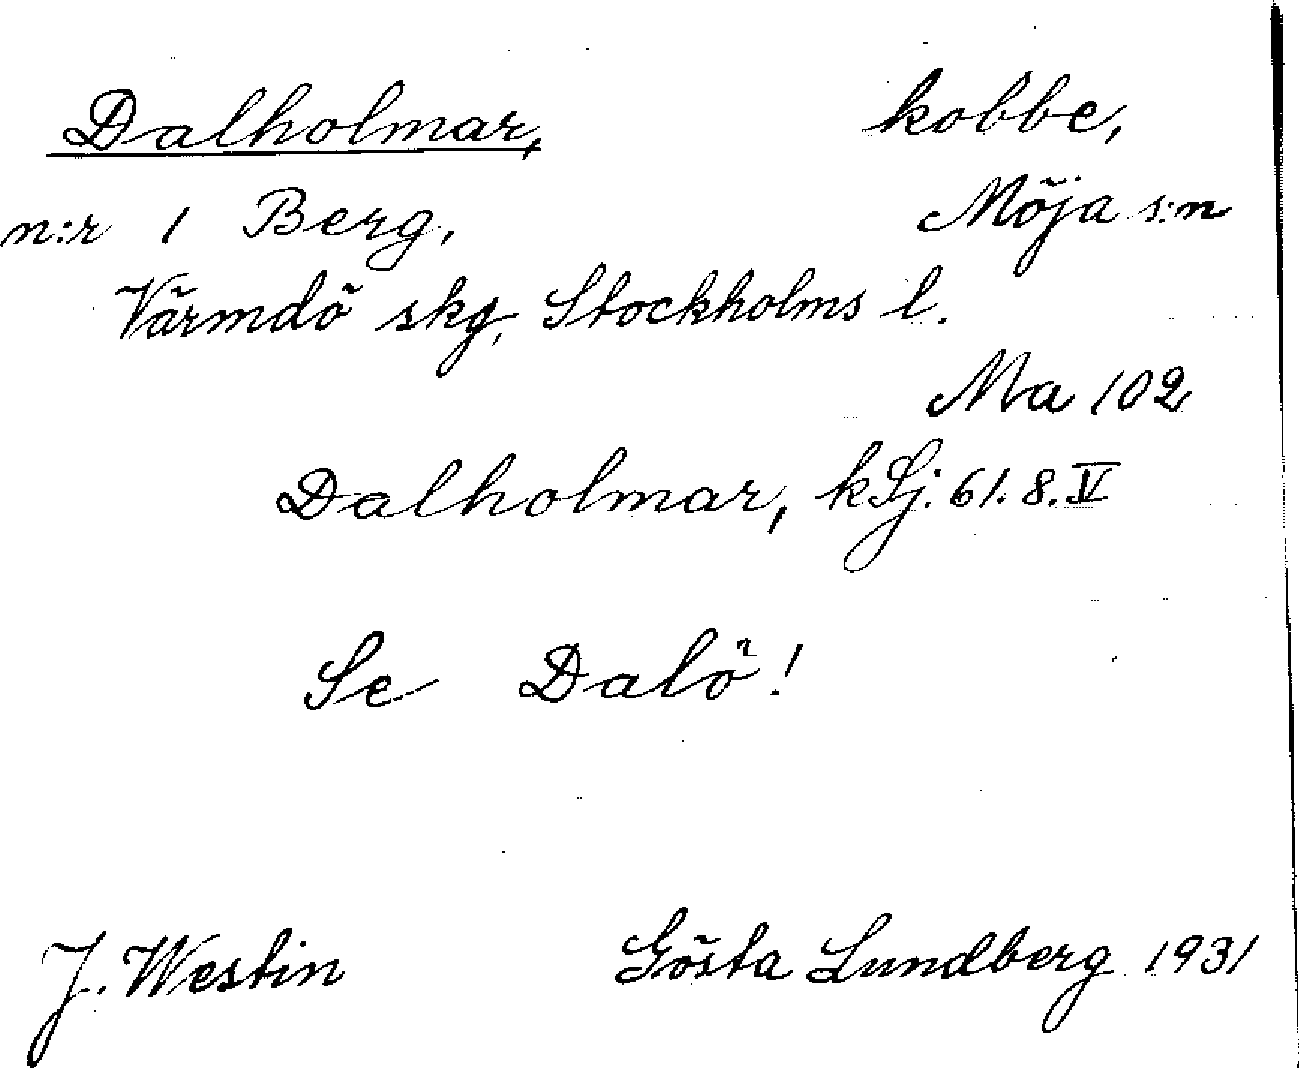 Dalholmar, kobbe,
n:r 1 Berg, Möja s:n
Värmdö skg, Stockholms l.
Ma 102
Dalholmar, kSj. 61.8.V
Se Dalö!
J. Westin Gösta Lundberg 1931